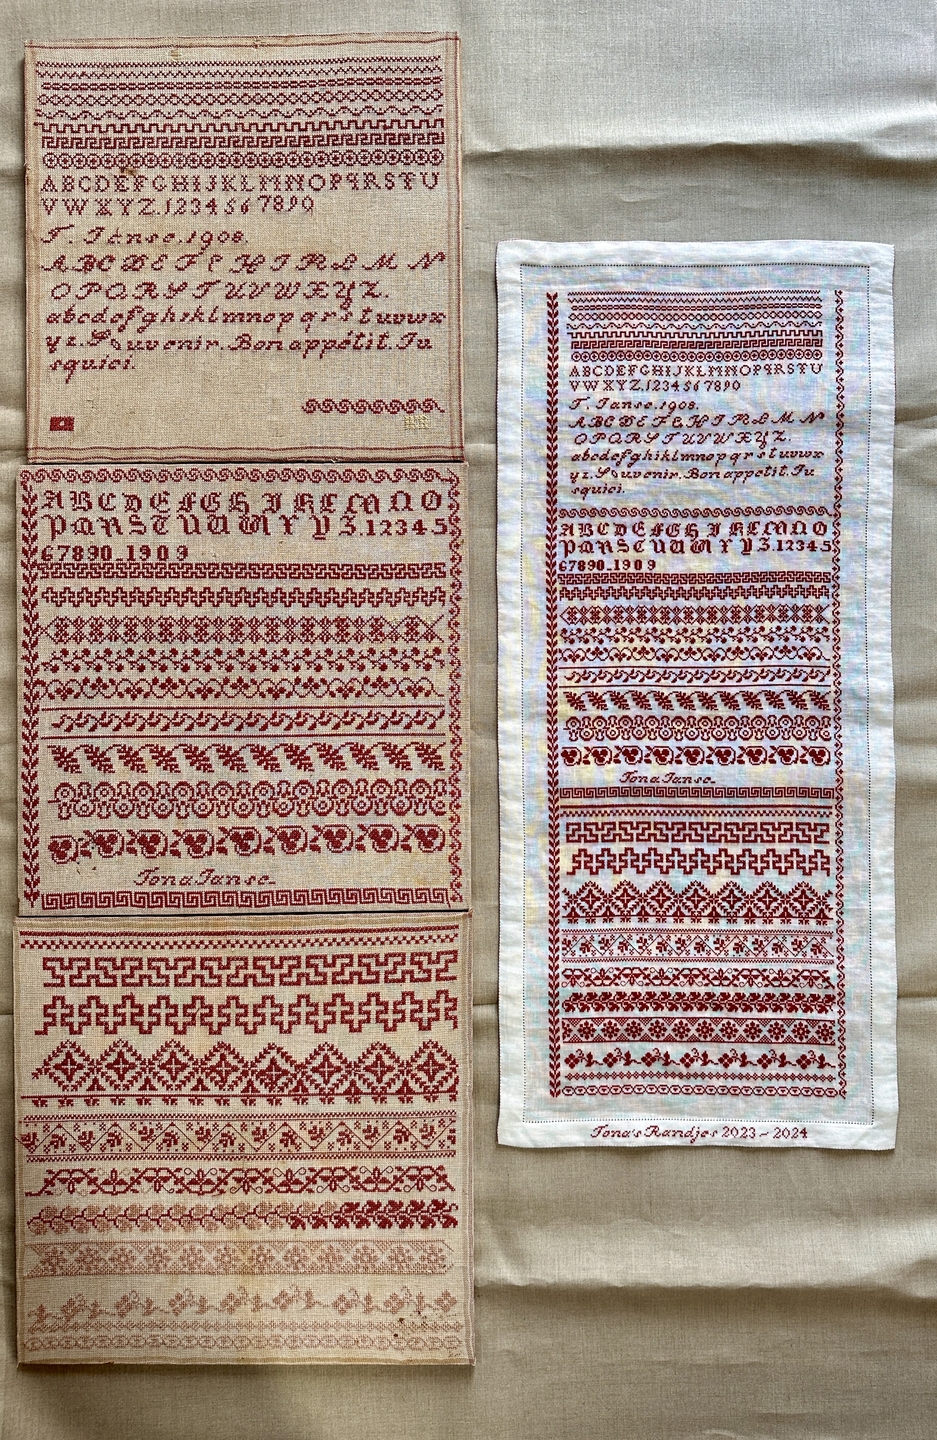 ABCDEFGHIJKLMNOPQRSTU
VWXYZ.1234567890
T. Tanse.1908.
ABCDEFGHIJKLMN
OPQRSTUVWXYZ.
abcdefghiklmnopqrstuvwx
yz. Souvenir. Bon appétit. Tu
squici.
ABCDEFGHIJKLMNO
PQRSTUVWXYZ.12345
67890.1909
Tona Tanse
ABCDEFGHIJKLMNOPQRSTU
VWXYZ.1234567890
T. Tanse.1908.
ABCDEFGHIJKLMN
OPQRSTUVWXYZ.
abcdefghiklmnopqrstuvwx
yz. Souvenir. Bon appetit. Tu
squici.
ABCDEFGHIJKLMNO
PQRSTUVWXYZ.12345
67890.1909
Tona Tanse
Tona's Randjes 2023~2024